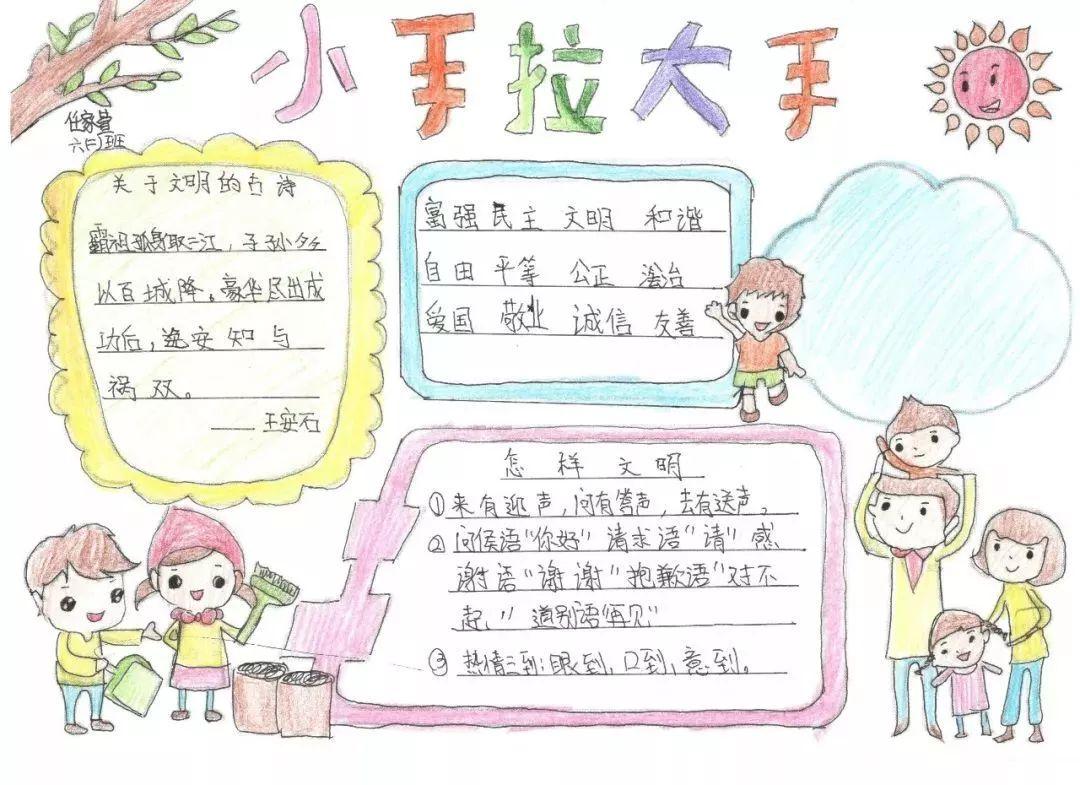 小手拉大手
关于文明的古诗
霸祖孤身取二江，子孙多
以百城降。豪华尽出成
功后，逸安知与
祸双。
——王安石
富强 民主 文明 和谐
自由 平等 公正 法治
爱国 敬业 诚信 友善
怎样文明
①来有迎声，问有答声，去有送声。
②问侯语“你好”请求语“请”感
谢语“谢谢”抱歉语“对不
起，”道别语“再见”
③热情三到：眼到，口到，意到。